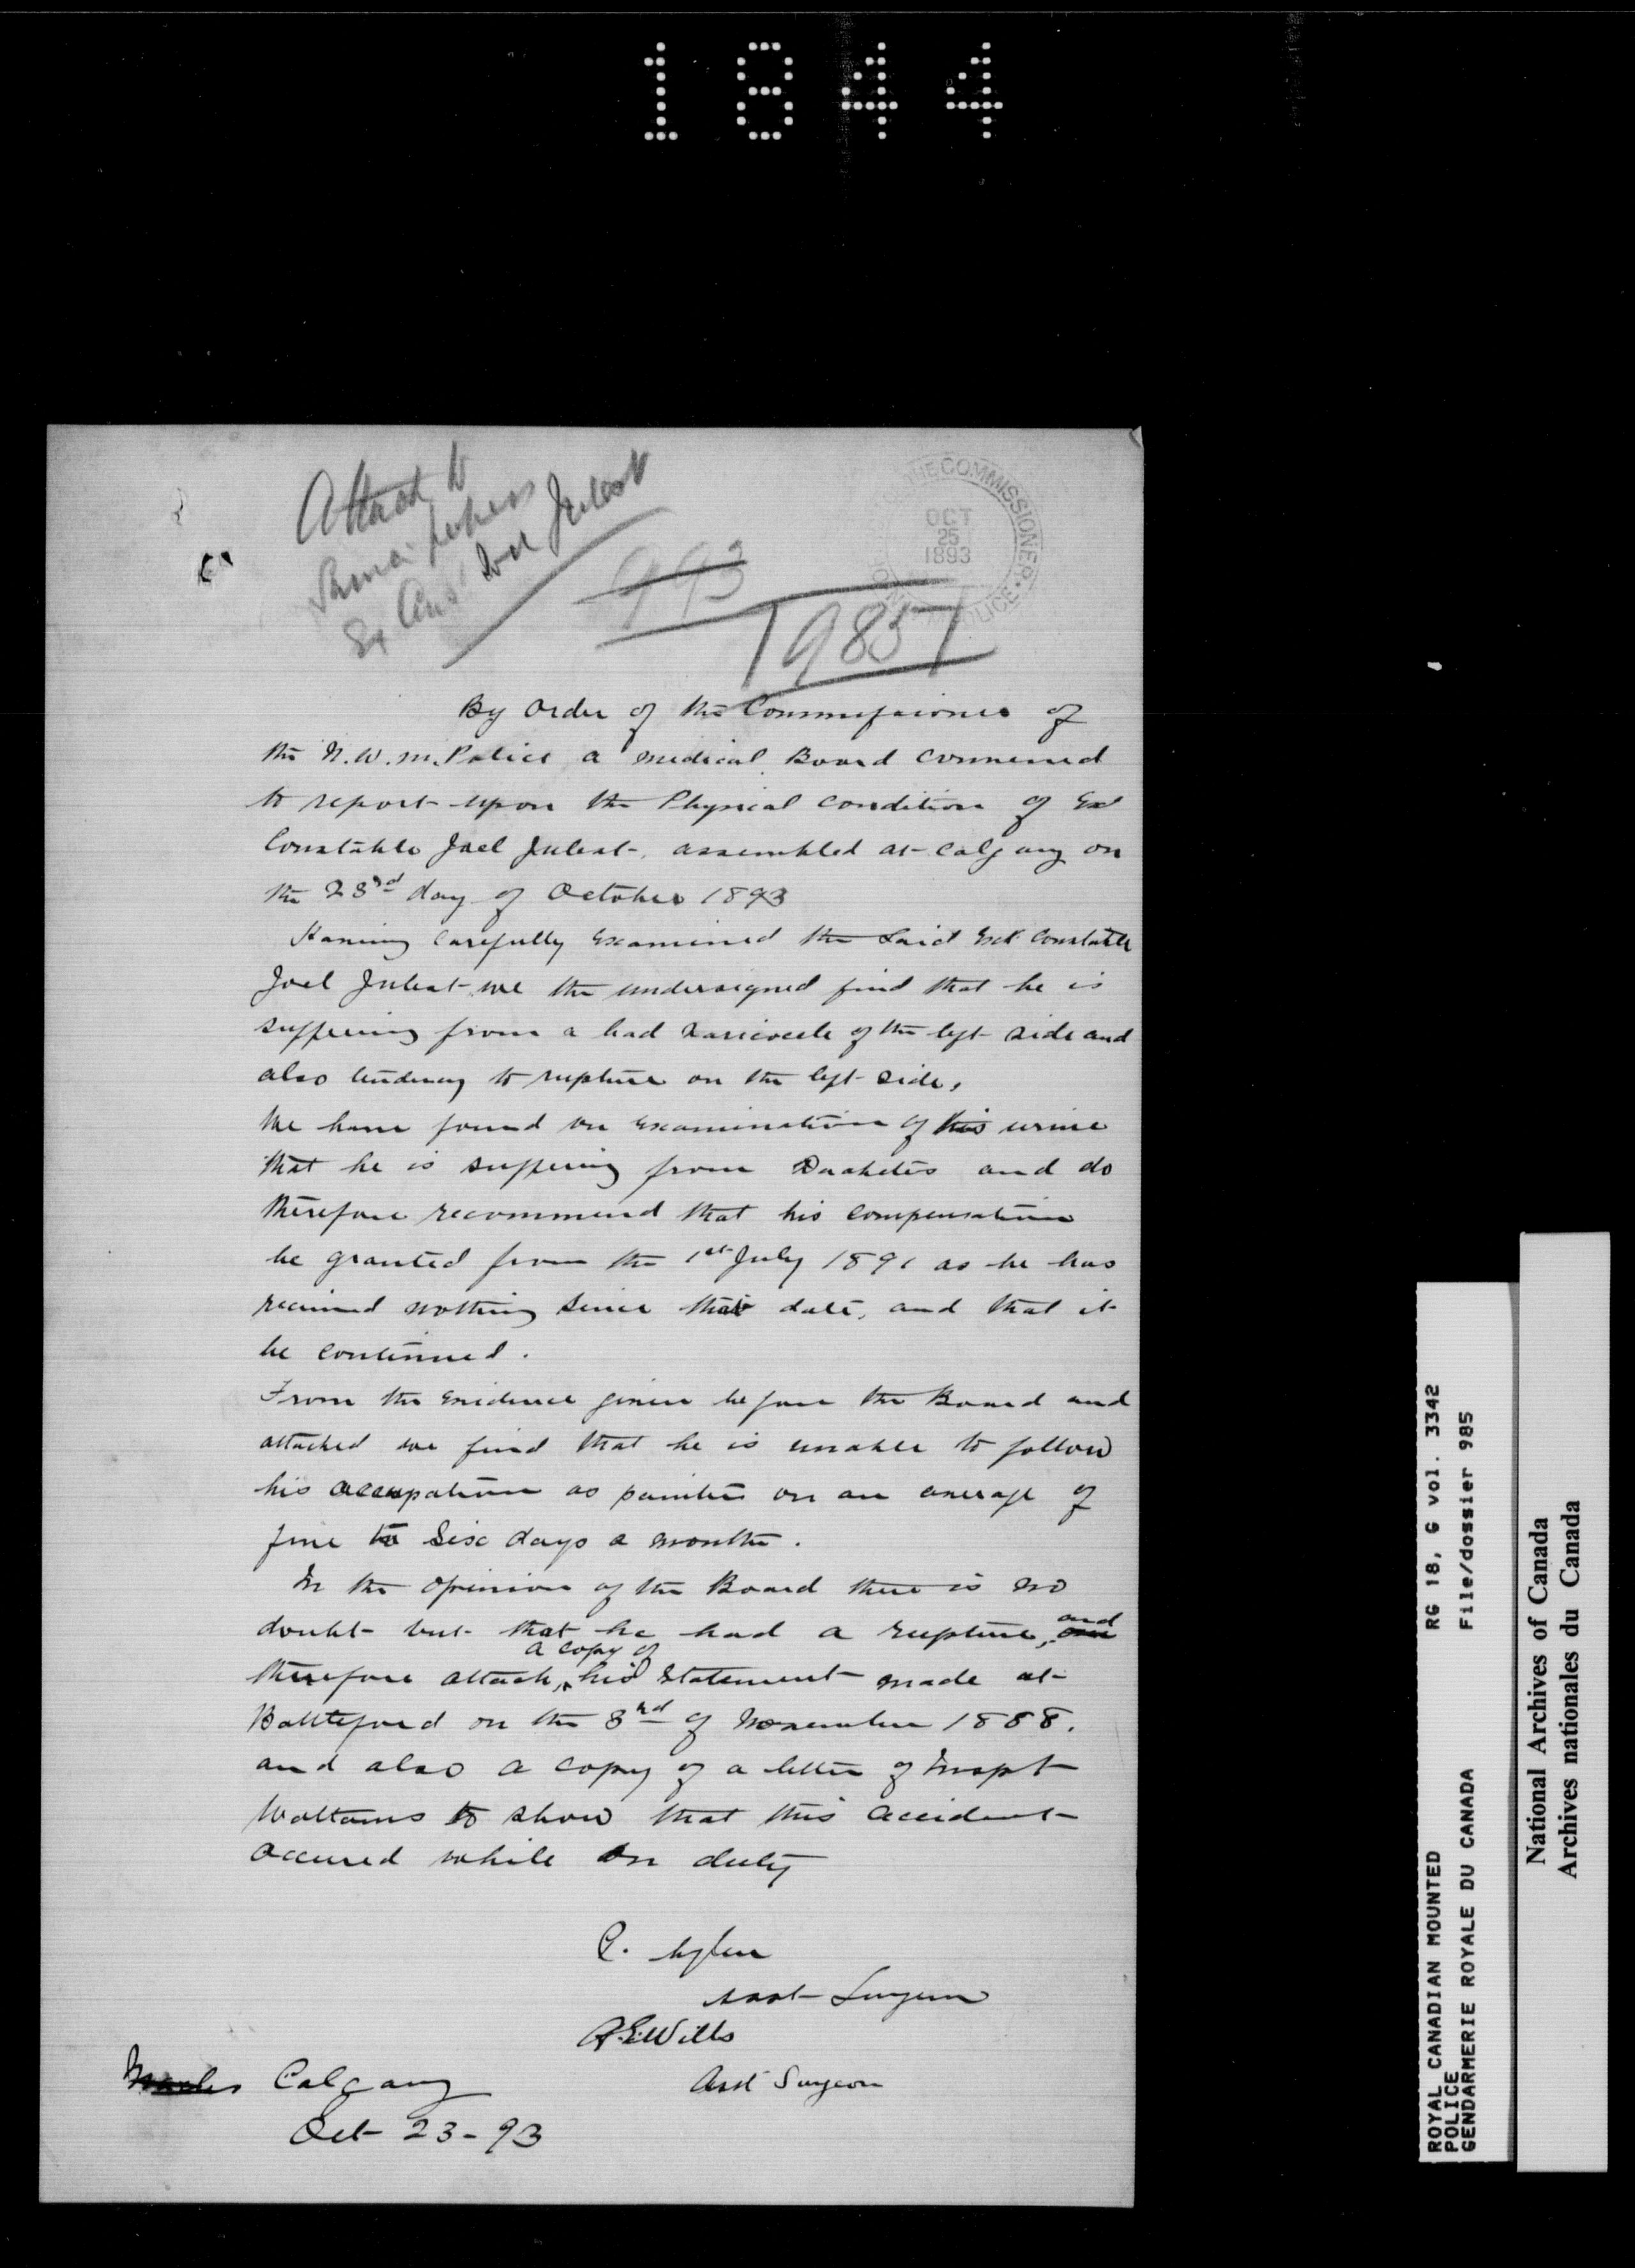 1844
Attach to
papers
Ex Const Joel Juleat
993
COMMISSIONER
OCT
25
1893
POLICE
985
By Order of the Commissioner of
the N.W.M. Police a medical Board convened
to report upon the Physical condition of Ex
Constable Joel Juleat, assembled at Calgary on
the 23rd day of October 1893
Having carefully examined the said Ex Constable
Joel Juleat we the undersigned find that he is
suffering from a bad varicocele of the left side and
also tendency to rupture on the left side,
We have found on examination of his urine
that he is suffering from Diabetes and do
therefore recommend that his compensation
be granted from the 1st July 1891 as he has
received nothing since that date, and that it
be continued.
From the evidence given before the Board and
attached we find that he is unable to follow
his occupation as painter on an average of
five to six days a month.
In the opinion of the Board there is no
doubt but that he had a rupture, and
therefore attach, a copy of his statement made at
Battleford on the 3rd of November 1888.
and also a copy of a letter of Inspt
Wattams to show that this accident
occured while on duty
Asst Surgeon
A.E. Wills
Asst Surgeon
Calgary
Oct 23-93
ROYAL CANADIAN MOUNTED
POLICE
GENDARMERIE ROYALE DU CANADA
RG 18, G vol. 3342
File/dossier 985
National Archives of Canada
Archives nationales du Canada